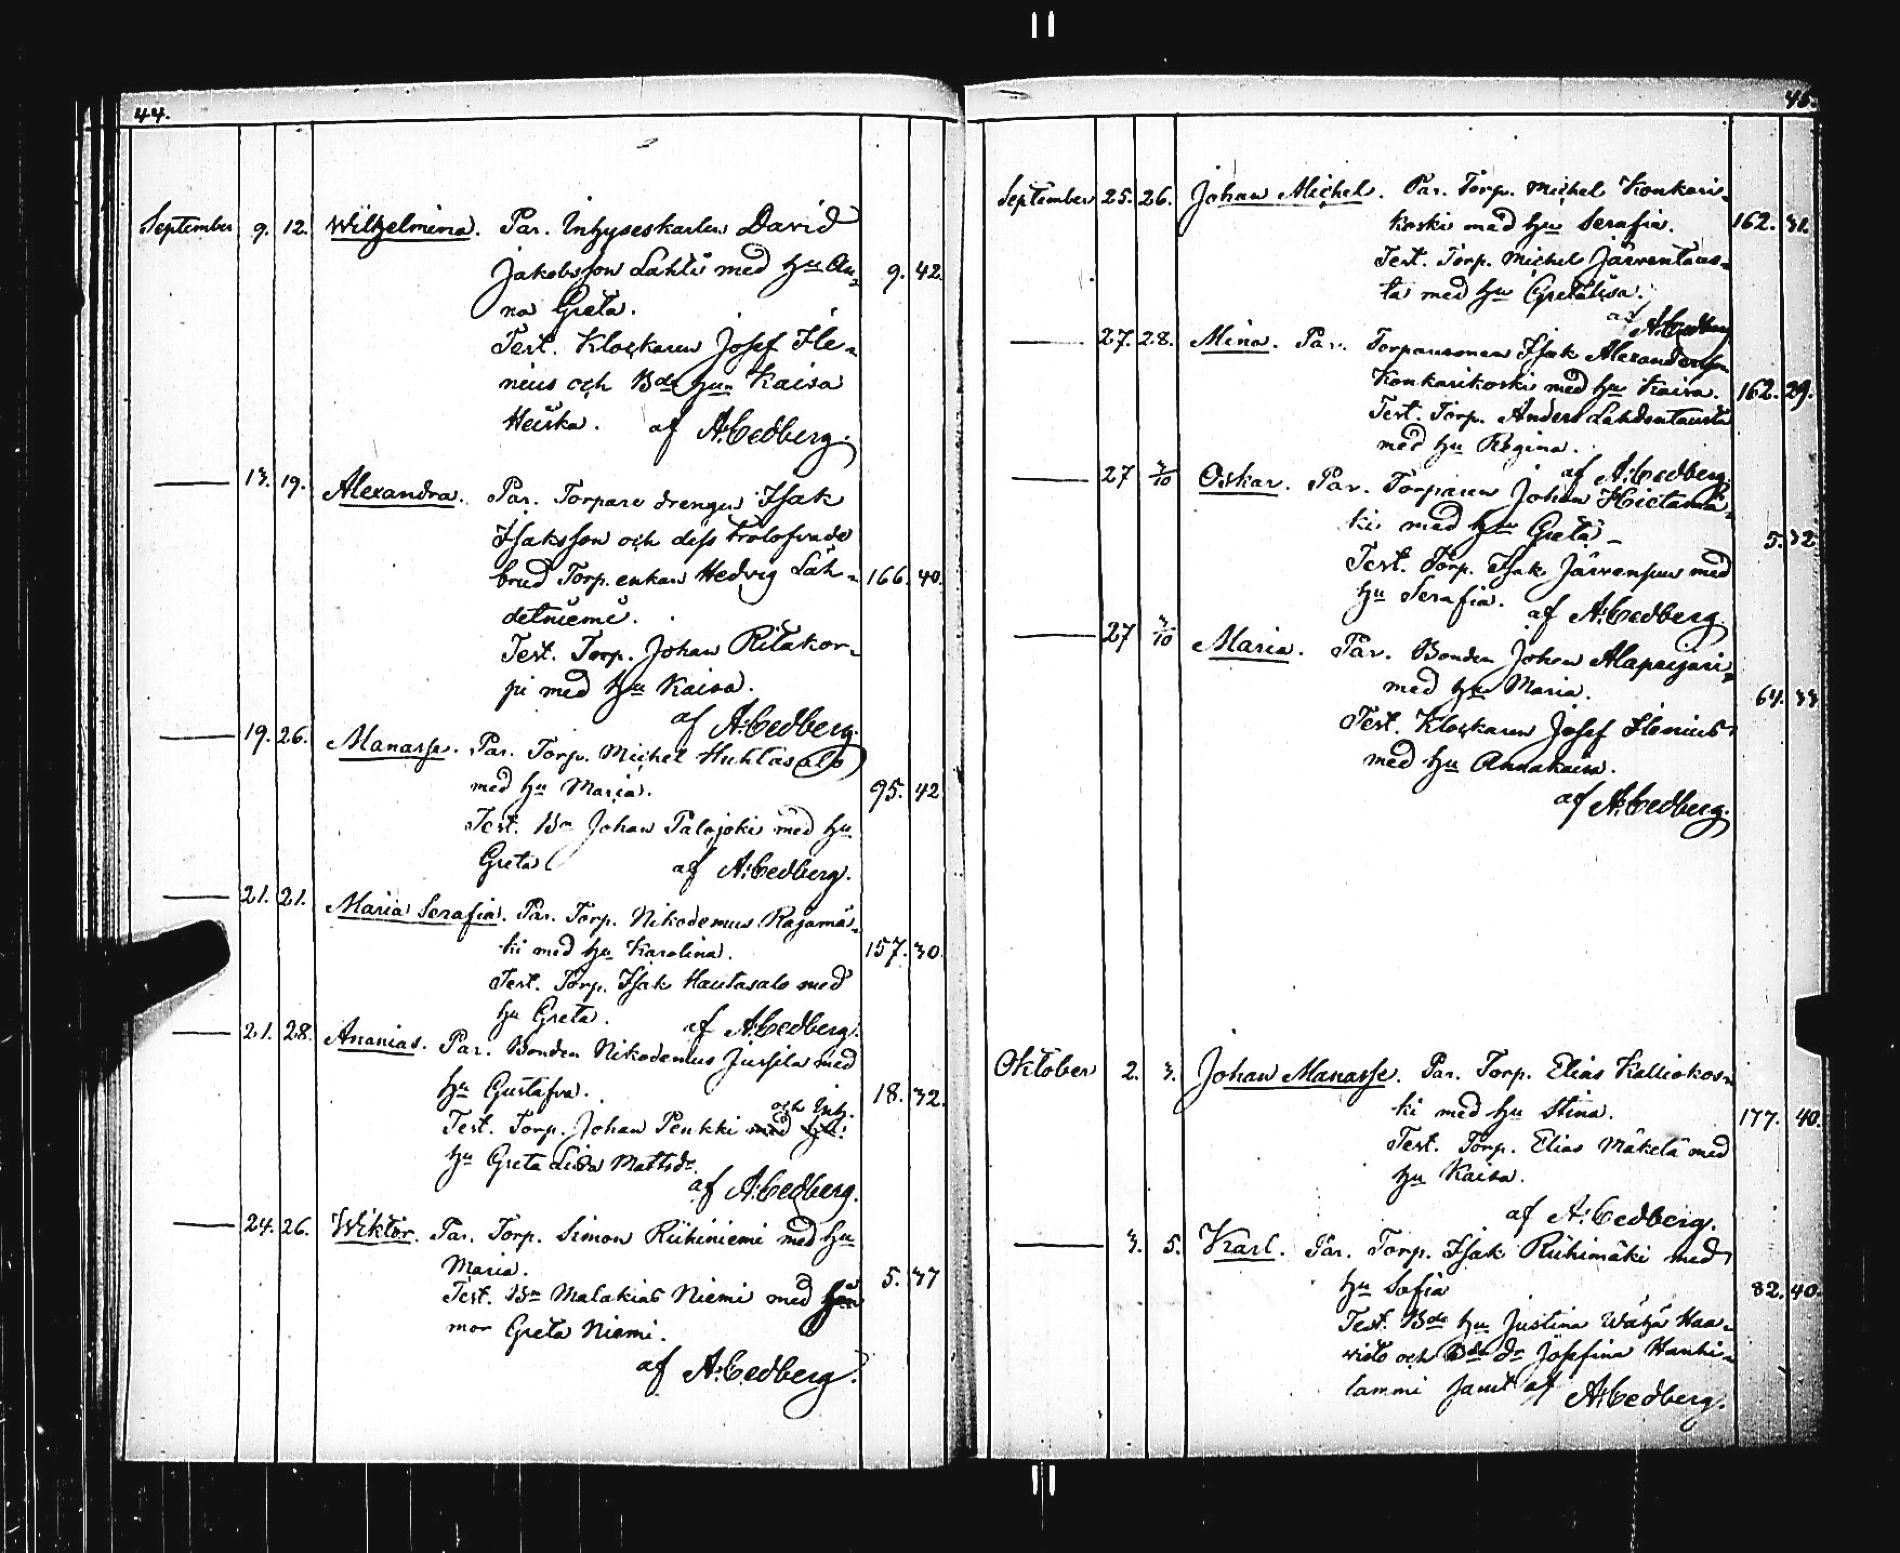 44.
September 9. 12. Wilhelmina. Par. Inhyseskarlen David
Jakobsson Lahti med hu An-
na Greta. 9. 42.
Test. Klockaren Josef Ile-
nius och Bde hun Kaisa
Heiska. af A. Cedberg.
— 13. 19. Alexandra. Par. Torpare drengen Isak
Isaksson och dess trolofvade
brud Torp. enkan Hedvig Läh- 166. 40.
detniemi.
Test. Torp. Johan Ritakor-
pi med hu Kaisa.
af A. Cedberg.
— 19. 26. Manasse. Par. Torp. Michel Huhtasalo
med hu Maria. 95. 42
Test. Bn Johan Palojoki med hu
Greta af A. Cedberg.
— 21. 21. Maria Serafia. Par. Torp. Nikodemus Rajamä-
ki med hu Karolina. 157. 30.
Test. Torp. Isak Hautasalo med
hu Greta. af A. Cedberg.
— 21. 28. Ananias. Par. Bonden Nikodemus Jussila med
hu Gustafva. 18. 32.
och Inh.
Test. Torp. Johan Penkki med hu
hu Greta Lisa Mattsdr.
af A. Cedberg.
— 24. 26. Wiktor. Par. Torp. Simon Riihiniemi med hu
Maria. 5. 37
Test. Bn Malakias Niemi med
mor Greta Niemi.
af A. Cedberg.
45.
September 25. 26. Johan Michel. Par. Torp. Michel Konkari-
koski med hu Serafia. 162. 31.
Test. Torp. Michel Järventaus-
ta med hu Gretalisa.
af A. Cedberg
— 27. 28. Mina. Par. Torparsonen Isak Alexandersson
Konkarikoski med hu Kaisa. 162. 29.
Test. Torp. Anders Lahdentausta
med hu Regina.
af A. Cedberg.
— 27 3/10 Oskar. Par. Torparen Johan Hietamä-
ki med hu Greta 5. 32
Test. Torp. Isak Järvenpää med
hu Serafia. af A. Cedberg.
— 27 3/10 Maria. Par. Bonden Johan Alapeijari
med hu Maria. 64. 33
Test. Klockaren Josef Ilenius
med hu Annakaisa.
af A. Cedberg.
Oktober 2. 3. Johan Manasse. Par. Torp. Elias Kalliokos-
ki med hu Stina. 177. 40.
Test. Torp. Elias Mäkelä med
hu Kaisa.
af A. Cedberg.
— 3. 5. Karl. Par. Torp. Isak Riihimäki med
hu Sofia 82. 40.
Test. Bde hu Justina Wähä Haa-
visto och Bde dr Josefina Hanhi-
lammi samt af A. Cedberg.